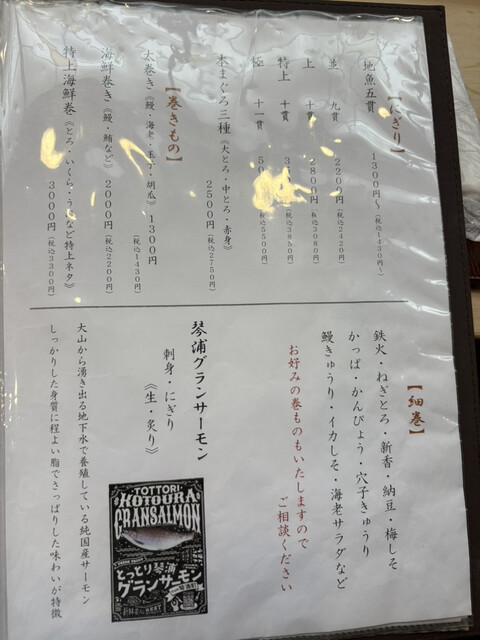 【にぎり】
地魚五貫 1300円〜（税込1430円〜）
並 九貫 2200円（税込2420円）
上 十貫 2800円（税込3080円）
特上 十貫 35（税込3850円）
極 十一貫 50（税込5500円）
本まぐろ三種《大とろ・中とろ・赤身》
2500円（税込2750円）
【巻きもの】
太巻き《鰻・海老・玉子・胡瓜》1300円
（税込1430円）
海鮮巻き《鰻・鮪など》2000円（税込2200円）
特上海鮮巻《とろ・いくら・うになど特上ネタ》
3000円（税込3300円）
【細巻】
鉄火・ねぎとろ・新香・納豆・梅しそ
かっぱ・かんぴょう・穴子きゅうり
鰻きゅうり・イカしそ・海老サラダなど
お好みの巻ものもいたしますので
ご相談ください
琴浦グランサーモン
刺身・にぎり
《生・炙り》
TOTTORI
KOTOURA
GRANSALMON
とっとり琴浦
グランサーモン
大山から湧き出る地下水で養殖している純国産サーモン
しっかりした身質に程よい脂でさっぱりした味わいが特徴